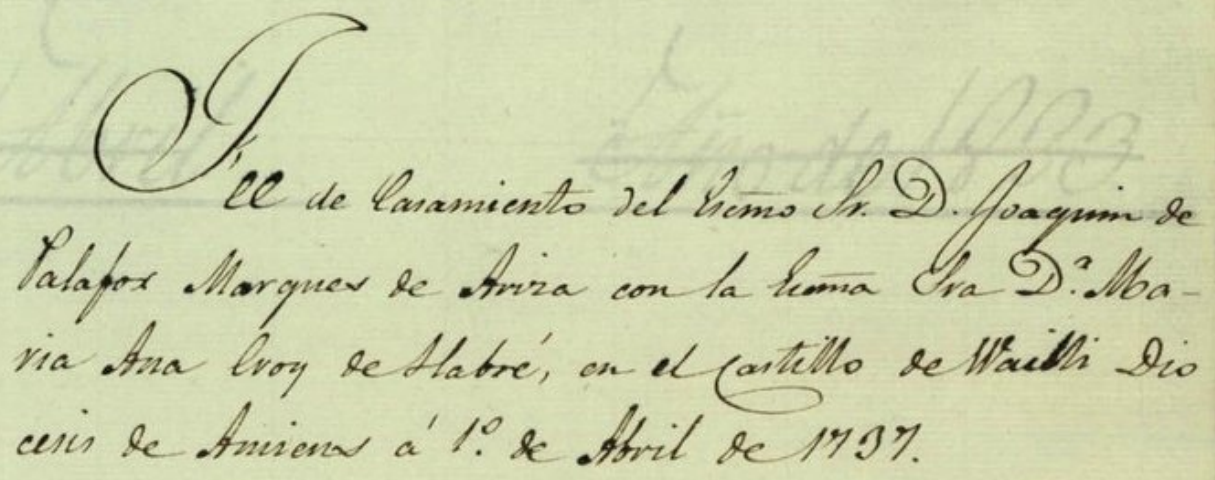 Fee de Casamiento del Exmo Sr. D. Joaquin de
Palafox Marques de Ariza con la Exma Sra D.ª Ma-
ria Ana Croy de Habré, en el Castillo de Wailli Dio
cesis de Amiens á 1.º de Abril de 1737.